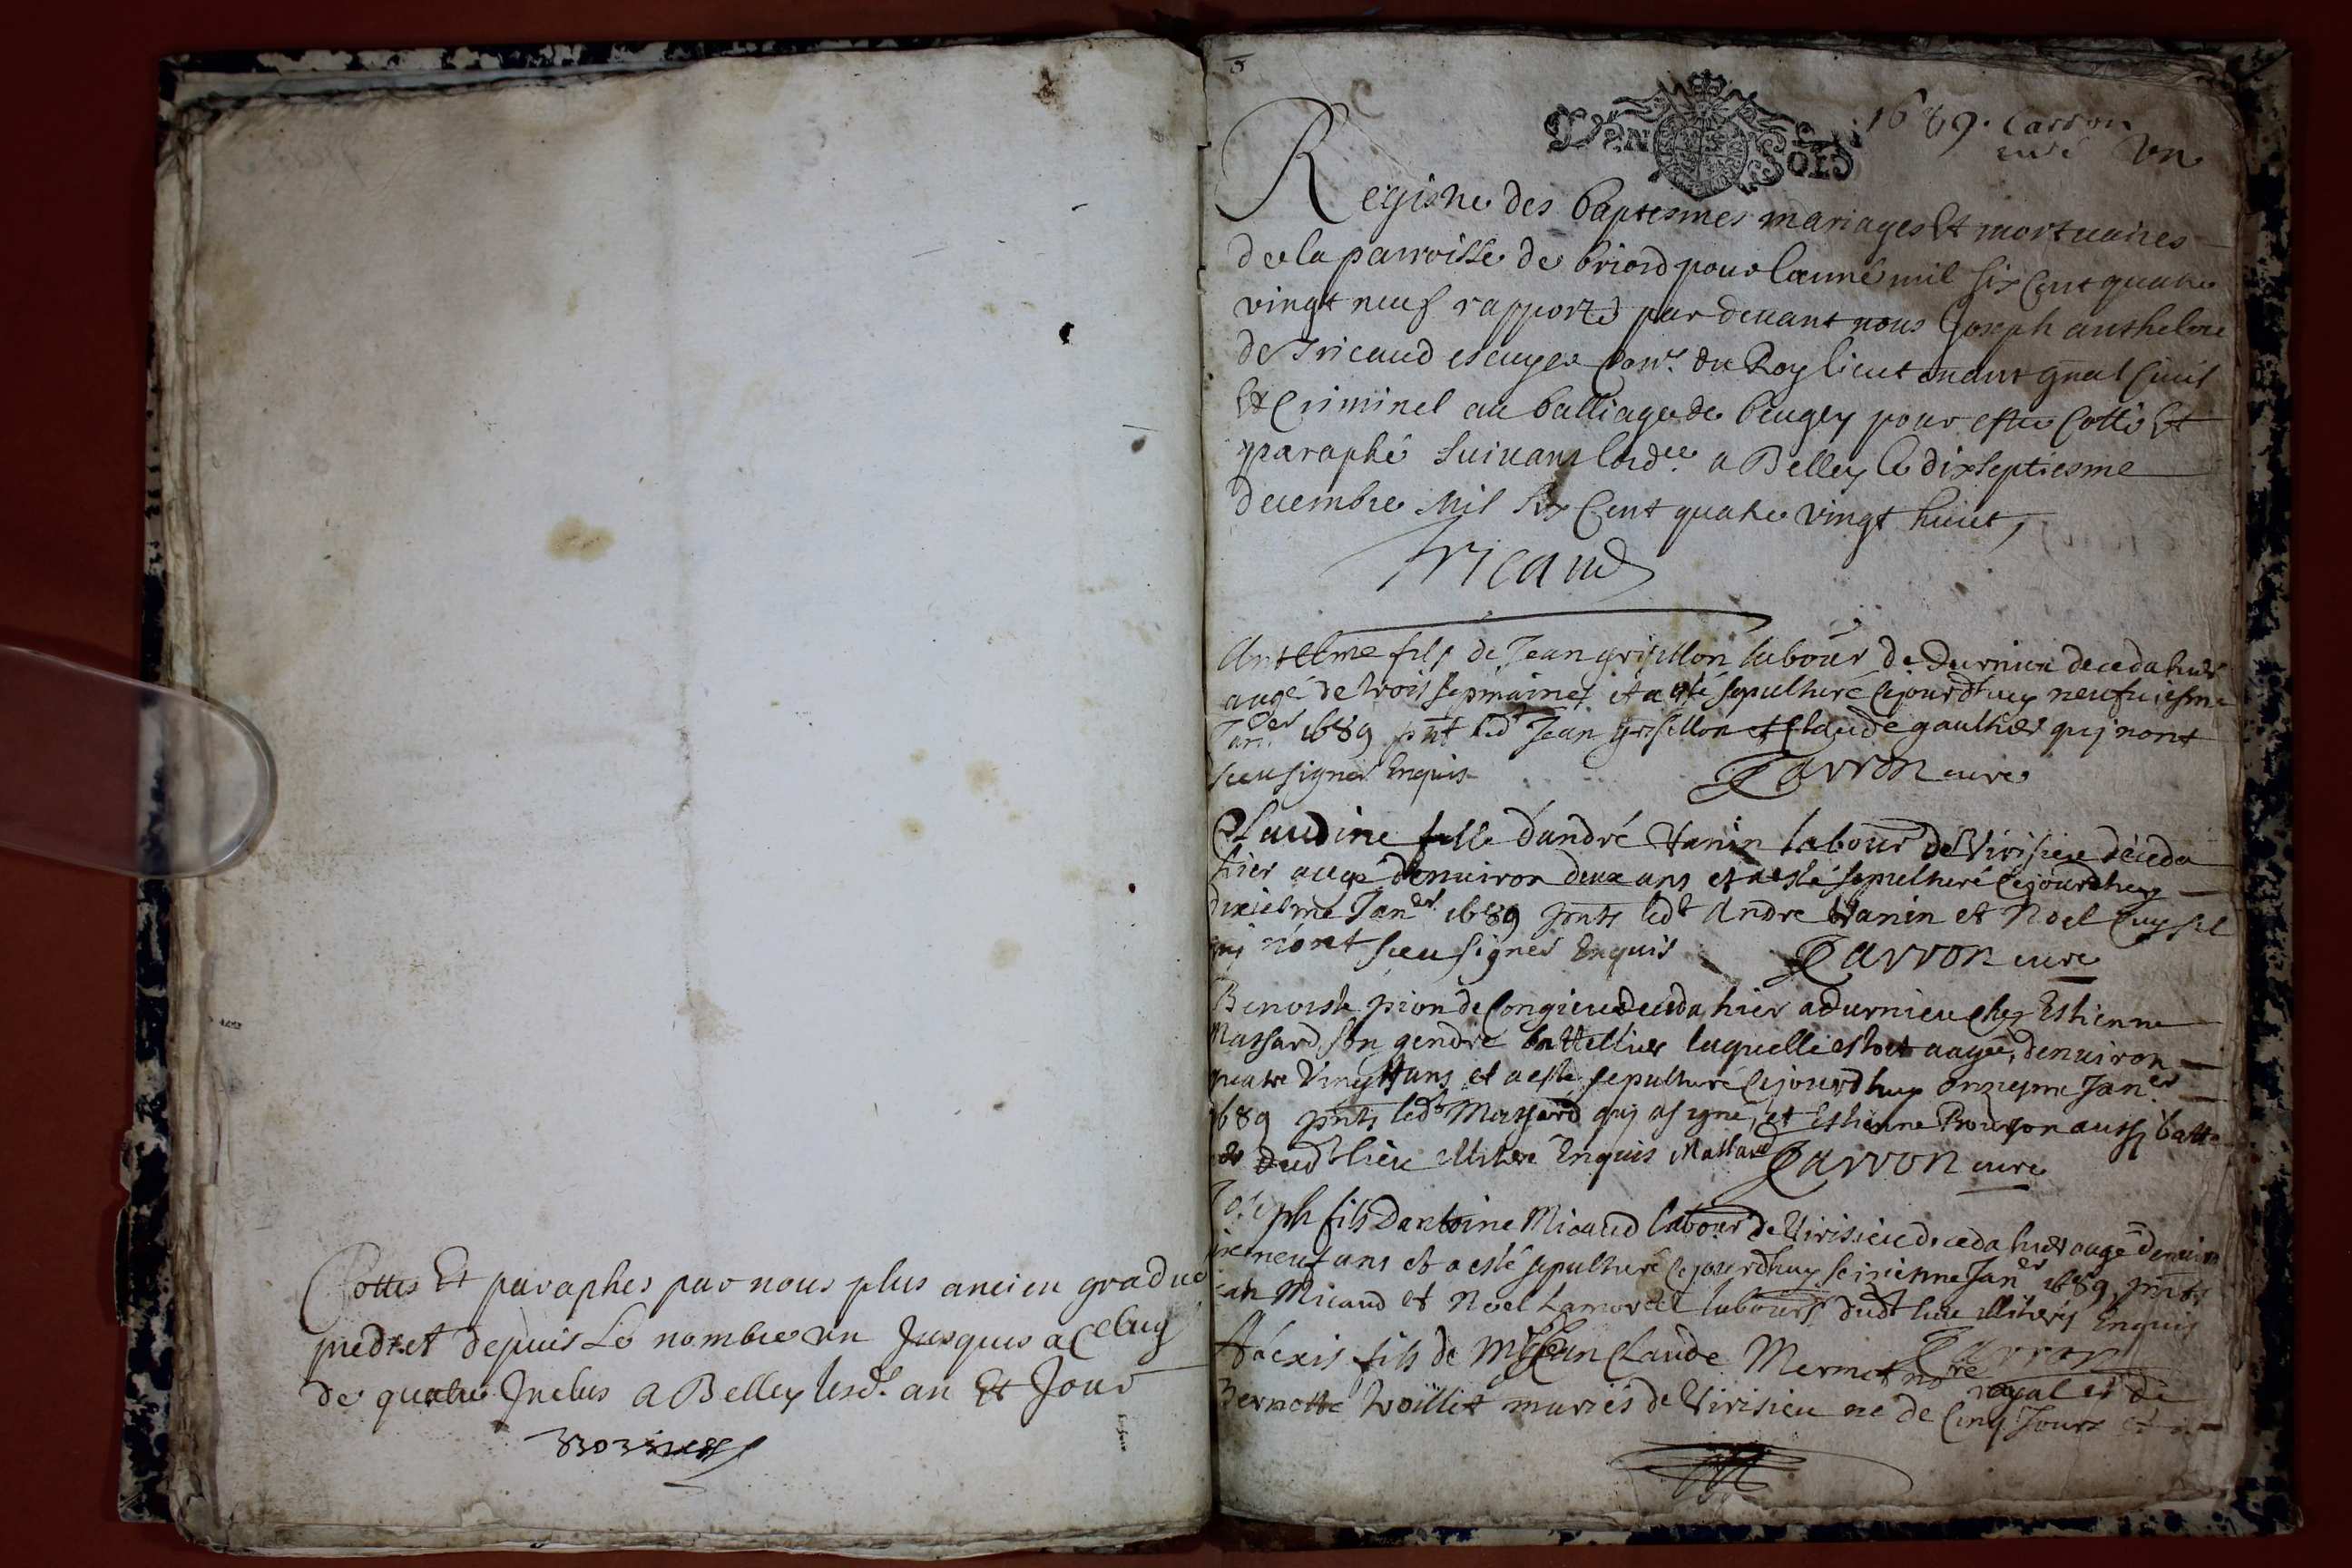 Cottes Et paraphes par nous plus ancien gradué
predt. et depuis Le nombre un Jusques a Celuy
de quatre Inclus a Belley lesd. an Et Jour
1689. Carron
curé Un
Registre des baptesmes mariages Et mortuaires
de la parroisse de briord pour lanné mil six Cent quatre
vingt neuf rapporté par devant nous Joseph anthelme
de Tricaud escuyer Conr. du Roy lieutenant gnal Civil
Et Criminel au balliage de beugey pour estre Cotté Et
paraphé suivant lordce. a Belley le dixseptiesme
decembre Mil six Cent quatre vingt huict,
Tricaud
Antelme fils de Jean grisillon labour de Durnieu deceda hier
aagé de trois sepmaines et a esté sepulturé cejourdhuy neufviesme
Janer 1689 pnt led Jean grisillon et Claude gaulthier qui nont
sceu signer Enquis Carron curé
Claudine fille dandré Vanin labour de Virisieu deceda
hier aagé denuiron deux ans et a esté sepulturé cejourdhuy
dixiesme Janer 1689 pnts ledt Andre Vanin et Noel
qui nont sceu signer Enquis Carron curé
Benoiste pion de Congieu deceda hier a durnieu chez Estienne
Massard son gendre battellier laquelle estoit aagée denuiron
quatre Vingt ans et a esté sepulturé cejourdhuy onziesme Janer
1689 pnts ledt Massard qui a signé, et Estienne aussy batte
er dudt lieu illiteré Enquis Massard Carron curé
Joseph fils dantoine Micaud labour de Virisieu deceda hier aagé denuiron
neuf ans et a esté sepulturé cejourdhuy seiziesme Janer 1689 pnts
Micaud et Noel Lamorel labours dudt lieu illiterés Enquis
Carron
Alexis fils de Mr Jean Claude Mermet nore royal et de
Bernotte troillet mariés de Virisieu né de Cinq Jours et